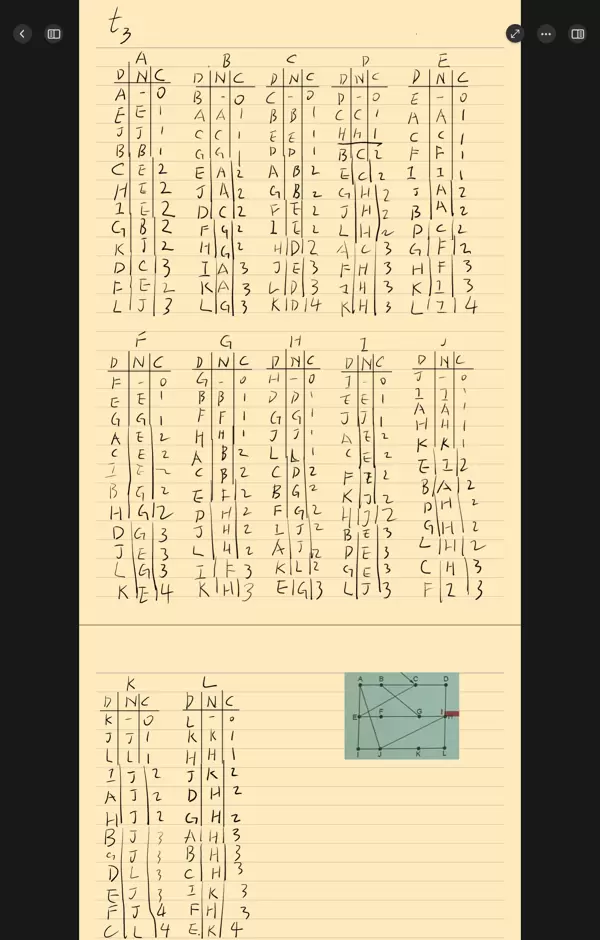 t3
A B C D E
D N C D N C D N C D N C D N C
A - 0 B - 0 C - 0 D - 0 E - 0
E E 1 A A 1 B B 1 C C 1 A A 1
J J 1 C C 1 E E 1 H h 1 C C 1
B B 1 G G 1 D D 1 B C 2 F F 1
C E 2 E A 2 A B 2 E C 2 I I 1
H E 2 J A 2 G B 2 G H 2 J A 2
I E 2 D C 2 F E 2 J H 2 B A 2
G B 2 F G 2 I E 2 L H 2 D C 2
K J 2 H G 2 H D 2 A C 3 G F 2
D C 3 I A 3 J E 3 F H 3 H F 3
F E 2 K A 3 L D 3 I H 3 K I 3
L J 3 L G 3 K D 4 K H 3 L I 4
F G H I J
D N C D N C D N C D N C D N C
F - 0 G - 0 H - 0 I - 0 J - 0
E E 1 B B 1 D D 1 E E 1 I I 1
G G 1 F F 1 G G 1 J J 1 A A 1
A E 2 H H 1 J J 1 A E 2 H H 1
C E 2 A B 2 L L 1 C E 2 K K 1
I E 2 C B 2 C D 2 F E 2 E I 2
B G 2 E F 2 B G 2 K J 2 B A 2
H G 2 D H 2 F G 2 H J 2 D H 2
D G 3 J H 2 I J 2 B E 3 G H 2
J E 3 L H 2 A J 2 D E 3 L H 2
L G 3 I F 3 K L 2 G E 3 C H 3
K E 4 K H 3 E G 3 L J 3 F 2 3
K L
D N C D N C
K - 0 L - 0
J J 1 K K 1
L L 1 H H 1
I J 2 J K 2
A J 2 D H 2
H J 2 G H 2
B J 3 A H 3
G J 3 B H 3
D L 3 C H 3
E J 3 I K 3
F J 4 F H 3
C L 4 E K 4
A B C D
E F G I H
I J K L